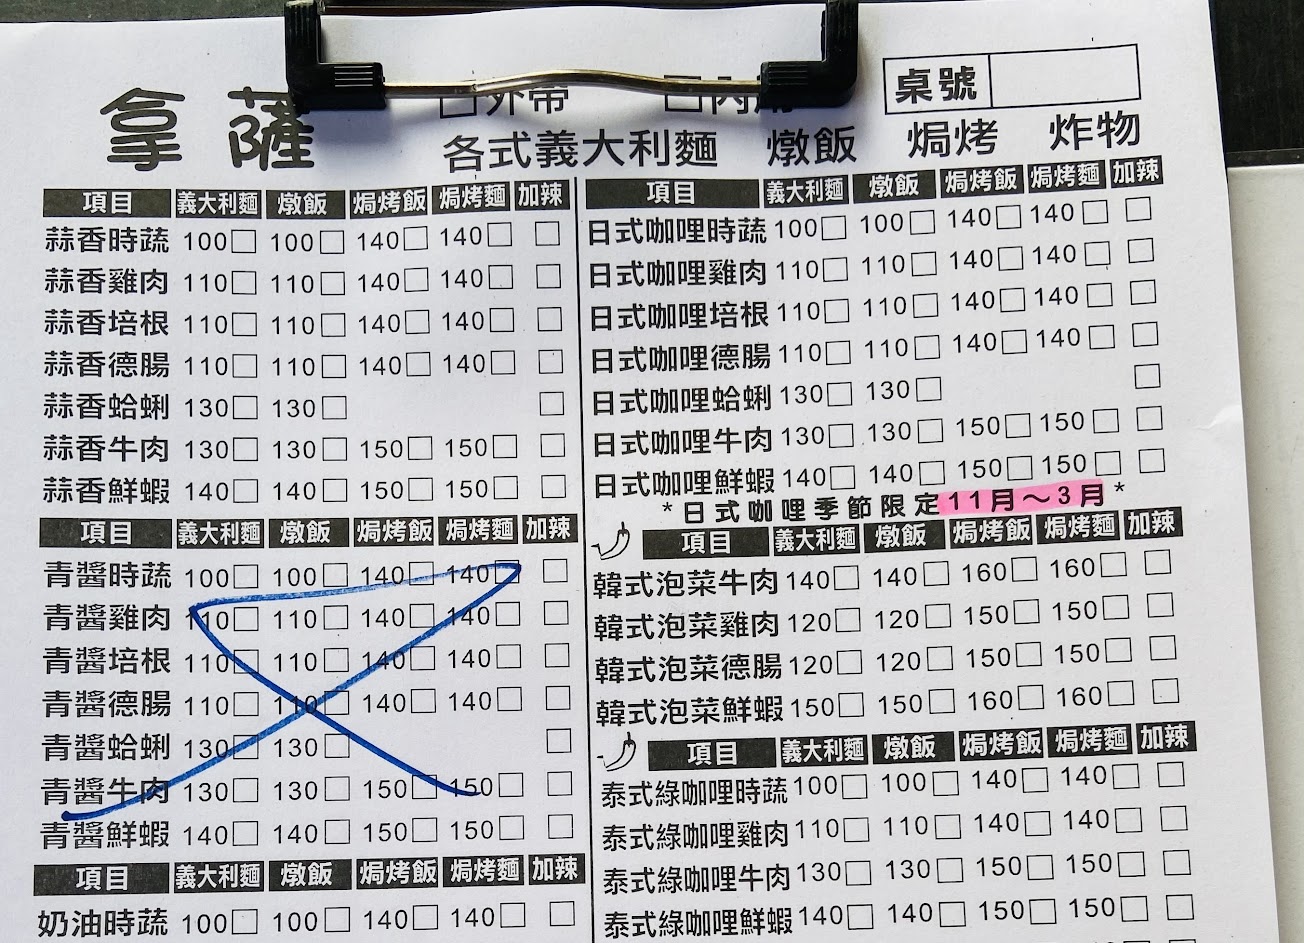 拿薩 □外帶 □內用 桌號
各式義大利麵 燉飯 焗烤 炸物
項目 義大利麵 燉飯 焗烤飯 焗烤麵 加辣
蒜香時蔬 100□ 100□ 140□ 140□ □
蒜香雞肉 110□ 110□ 140□ 140□ □
蒜香培根 110□ 110□ 140□ 140□ □
蒜香德腸 110□ 110□ 140□ 140□ □
蒜香蛤蜊 130□ 130□ □
蒜香牛肉 130□ 130□ 150□ 150□ □
蒜香鮮蝦 140□ 140□ 150□ 150□ □
項目 義大利麵 燉飯 焗烤飯 焗烤麵 加辣
青醬時蔬 100□ 100□ 140□ 140□ □
青醬雞肉 110□ 110□ 140□ 140□ □
青醬培根 110□ 110□ 140□ 140□ □
青醬德腸 110□ 110□ 140□ 140□ □
青醬蛤蜊 130□ 130□ □
青醬牛肉 130□ 130□ 150□ 150□ □
青醬鮮蝦 140□ 140□ 150□ 150□ □
項目 義大利麵 燉飯 焗烤飯 焗烤麵 加辣
奶油時蔬 100□ 100□ 140□ 140□ □
項目 義大利麵 燉飯 焗烤飯 焗烤麵 加辣
日式咖哩時蔬 100□ 100□ 140□ 140□ □
日式咖哩雞肉 110□ 110□ 140□ 140□ □
日式咖哩培根 110□ 110□ 140□ 140□ □
日式咖哩德腸 110□ 110□ 140□ 140□ □
日式咖哩蛤蜊 130□ 130□ □
日式咖哩牛肉 130□ 130□ 150□ 150□ □
日式咖哩鮮蝦 140□ 140□ 150□ 150□ □
*日式咖哩季節限定11月～3月*
項目 義大利麵 燉飯 焗烤飯 焗烤麵 加辣
韓式泡菜牛肉 140□ 140□ 160□ 160□ □
韓式泡菜雞肉 120□ 120□ 150□ 150□ □
韓式泡菜德腸 120□ 120□ 150□ 150□ □
韓式泡菜鮮蝦 150□ 150□ 160□ 160□ □
項目 義大利麵 燉飯 焗烤飯 焗烤麵 加辣
泰式綠咖哩時蔬 100□ 100□ 140□ 140□ □
泰式綠咖哩雞肉 110□ 110□ 140□ 140□ □
泰式綠咖哩牛肉 130□ 130□ 150□ 150□ □
泰式綠咖哩鮮蝦 140□ 140□ 150□ 150□ □